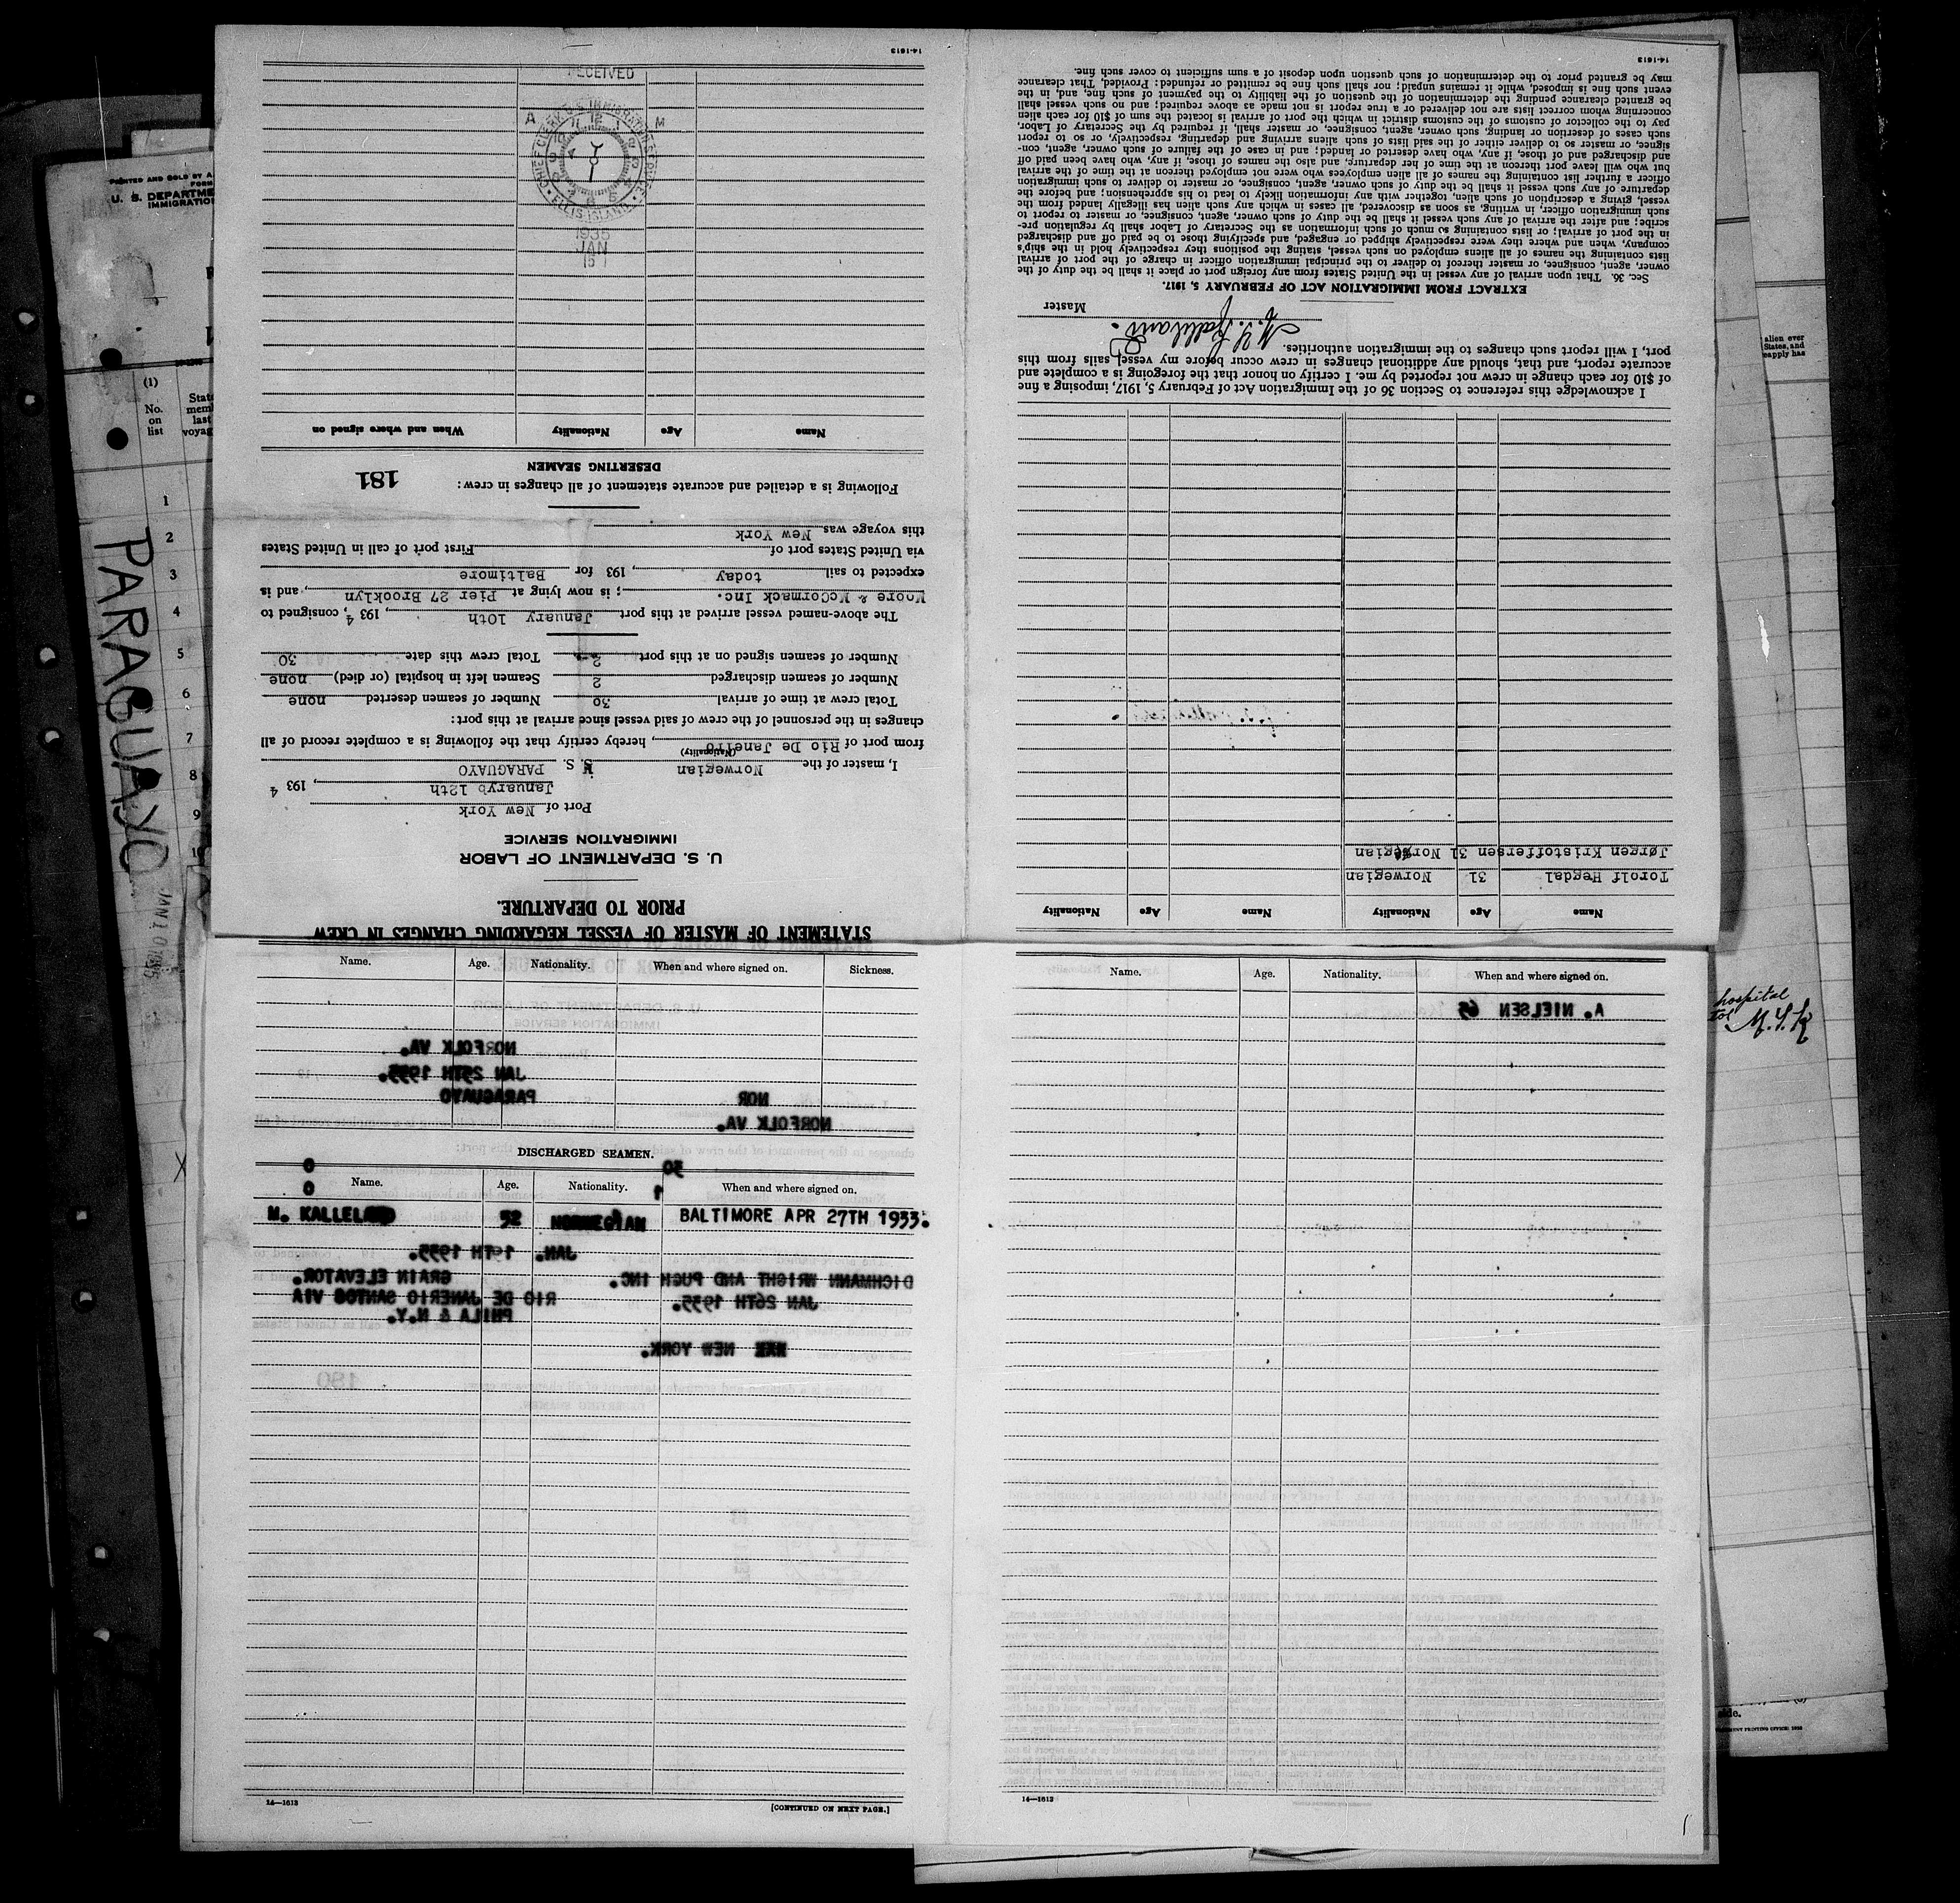 STATEMENT OF MASTER OF VESSEL REGARDING CHANGES IN CREW
PRIOR TO DEPARTURE.
U. S. DEPARTMENT OF LABOR
IMMIGRATION SERVICE
Port of New York
January 12th, 193 4
I, master of the Norwegian S. S. PARAGUAYO
(Nationality)
from port of Rio De Janeiro, hereby certify that the following is a complete record of all
changes in the personnel of the crew of said vessel since arrival at this port:
Total crew at time of arrival 30 Number of seamen deserted none
Number of seamen discharged 2 Seamen left in hospital (or died) none
Number of seamen signed on at this port 2 Total crew this date 30
The above-named vessel arrived at this port January 10th, 193 4, consigned to
Moore & McCormack Inc.; is now lying at Pier 27 Brooklyn, and is
expected to sail today, 193 for Baltimore
via United States port of First port of call in United States
this voyage was New York
Following is a detailed and accurate statement of all changes in crew: 181
DESERTING SEAMEN
Name Age Nationality When and where signed on
RECEIVED
A M
CHIEF CLERK U.S. IMMIGRATION SERVICE
ELLIS ISLAND
1935
JAN
15
14-1613
Name Age Nationality Name Age Nationality
Torolf Hegdal 31 Norwegian
Jørgen Kristoffersen 31 Norwegian
I acknowledge this reference to Section 36 of the Immigration Act of February 5, 1917, imposing a fine
of $10 for each change in crew not reported by me. I certify on honor that the foregoing is a complete and
accurate report, and that, should any additional changes in crew occur before my vessel sails from this
port, I will report such changes to the immigration authorities.
Master
EXTRACT FROM IMMIGRATION ACT OF FEBRUARY 5, 1917.
Sec. 36. That upon arrival of any vessel in the United States from any foreign port or place it shall be the duty of the
owner, agent, consignee, or master thereof to deliver to the principal immigration officer in charge of the port of arrival
lists containing the names of all aliens employed on such vessel, stating the positions they respectively hold in the ship's
company, when and where they were respectively shipped or engaged, and specifying those to be paid off and discharged
in the port of arrival; or lists containing so much of such information as the Secretary of Labor shall by regulation pre-
scribe; and after the arrival of any such vessel it shall be the duty of such owner, agent, consignee, or master to report to
such immigration officer, in writing, as soon as discovered, all cases in which any such alien has illegally landed from the
vessel, giving a description of such alien, together with any information likely to lead to his apprehension; and before the
departure of any such vessel it shall be the duty of such owner, agent, consignee, or master to deliver to such immigration
officer a further list containing the names of all alien employees who were not employed thereon at the time of the arrival
but who will leave port thereon at the time of her departure, and also the names of those, if any, who have been paid off
and discharged and of those, if any, who have deserted or landed; and in case of the failure of such owner, agent, con-
signee, or master so to deliver either of the said lists of such aliens arriving and departing, respectively, or so to report
such cases of desertion or landing, such owner, agent, consignee, or master shall, if required by the Secretary of Labor,
pay to the collector of customs of the customs district in which the port of arrival is located the sum of $10 for each alien
concerning whom correct lists are not delivered or a true report is not made as above required; and no such vessel shall
be granted clearance pending the determination of the question of the liability to the payment of such fine, and, in the
event such fine is imposed, while it remains unpaid; nor shall such fine be remitted or refunded: Provided, That clearance
may be granted prior to the determination of such question upon deposit of a sum sufficient to cover such fine.
14-1613
Name. Age. Nationality. When and where signed on. Sickness.
NORFOLK VA.
JAN 25TH 1935.
PARAGUAYO NOR
NORFOLK VA.
DISCHARGED SEAMEN.
0 30
Name. Age. Nationality. When and where signed on.
0 1
M. KALLELAND 52 NORWEGIAN BALTIMORE APR 27TH 1933.
JAN. 19TH 1935.
DICHMANN WRIGHT AND PUGH INC. GRAIN ELEVATOR.
JAN 26TH 1935. RIO DE JANERIO SANTOS VIA
PHILA & N.Y.
NEW YORK.
180
14—1613
[CONTINUED ON NEXT PAGE.]
Name. Age. Nationality. When and where signed on.
A. NIELSEN
14—1613
PRINTED AND SOLD BY A
FORM
U. S. DEPARTME
IMMIGRATION
(1)
No.
on
list
State
mem
last
voyag
1
2
3
4
5
6
7
8
9
10
PARAGUAYO
JAN 10 1935
X
alien ever
States, and
reapply has
hospital
M. T. K
side.